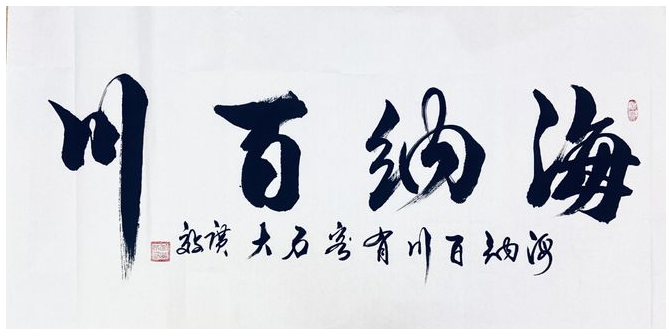 海纳百川
海纳百川有容石大